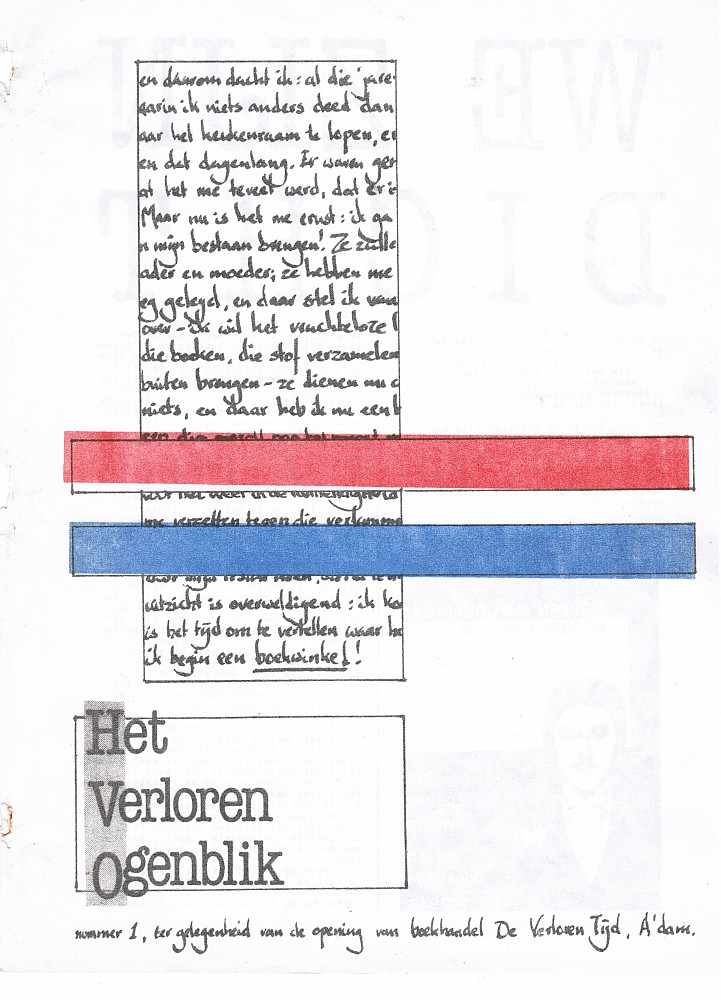 en daarom dacht ik : al die jare
aarin ik niets anders deed dan
aar het keukenraam te lopen, en
en dat dagenlang. Er waren ger
at het me teveel werd, dat er i
Maar nu is het me ernst : ik ga
n mijn bestaan brengen! Ze zulle
ader en moeder; ze hebben me
eg gelegd, en daar stel ik van
over - ik wil het vruchteloze l
die boeken, die stof verzamelen
buiten brengen - ze dienen nu c
niets, en daar heb ik nu een b
me verzetten tegen die verkomme
uitzicht is overweldigend : ik ko
is het tijd om te vertellen waar he
ik begin een boekwinkel!
Het
Verloren
Ogenblik
nummer 1, ter gelegenheid van de opening van boekhandel De Verloren Tijd, A'dam.